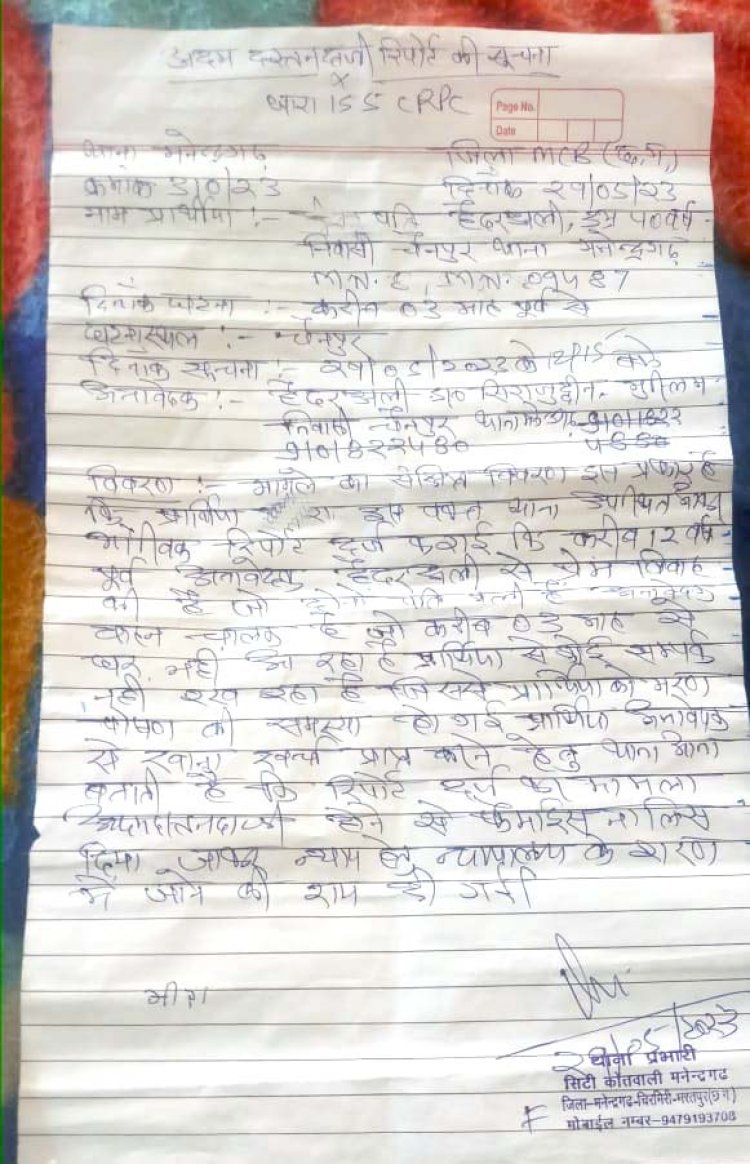 अदम दस्तनदाजी रिपोर्ट की सूचना
x
धारा 155 CRPC
Page No.
Date
थाना मनेन्द्रगढ़ जिला MCB (छ.ग.)
क्रमांक 310/23 दिनांक 29/05/23
नाम प्रार्थीया :- पति हैदरअली, उम्र 40 वर्ष
निवासी चैनपुर थाना मनेन्द्रगढ़
दिनांक घटना :- करीब 03 माह पूर्व से
घटनास्थल :- चैनपुर
दिनांक सूचना :- को 12/15 बजे
अनावेदक :- हैदरअली S/o सिराजुद्दीन मुस्लिम
निवासी चैनपुर थाना
विवरण :- मामले का संक्षिप्त विवरण इस प्रकार है
कि प्रार्थिया इस वक्त थाना उपस्थित आकर
मौखिक रिपोर्ट दर्ज कराई कि करीब 12 वर्ष
पूर्व अनावेदक हैदरअली से प्रेम विवाह
की है जो दोनों पति पत्नी है अनावेदक
वाहन चालक है जो करीब 03 माह से
घर नही आ रहा है प्रार्थिया से कोई सम्पर्क
नही रख रहा है जिससे प्रार्थिया को भरण
पोषण की समस्या हो गई प्रार्थिया अनावेदक
से खाना खर्चा प्राप्त करने हेतु थाना आना
बताती है कि रिपोर्ट दर्ज कर मामला
अदमदस्तनदाजी होने से फैमाईस नालिस
दिया जाकर न्याय हेतु न्यायालय के शरण
में जाने की राय दी गयी
मीरा
थाना प्रभारी
सिटी कोतवाली मनेन्द्रगढ
जिला-मनेन्द्रगढ-चिरमिरी-भरतपुर(छ ग)
मोबाईल नम्बर-9479193708